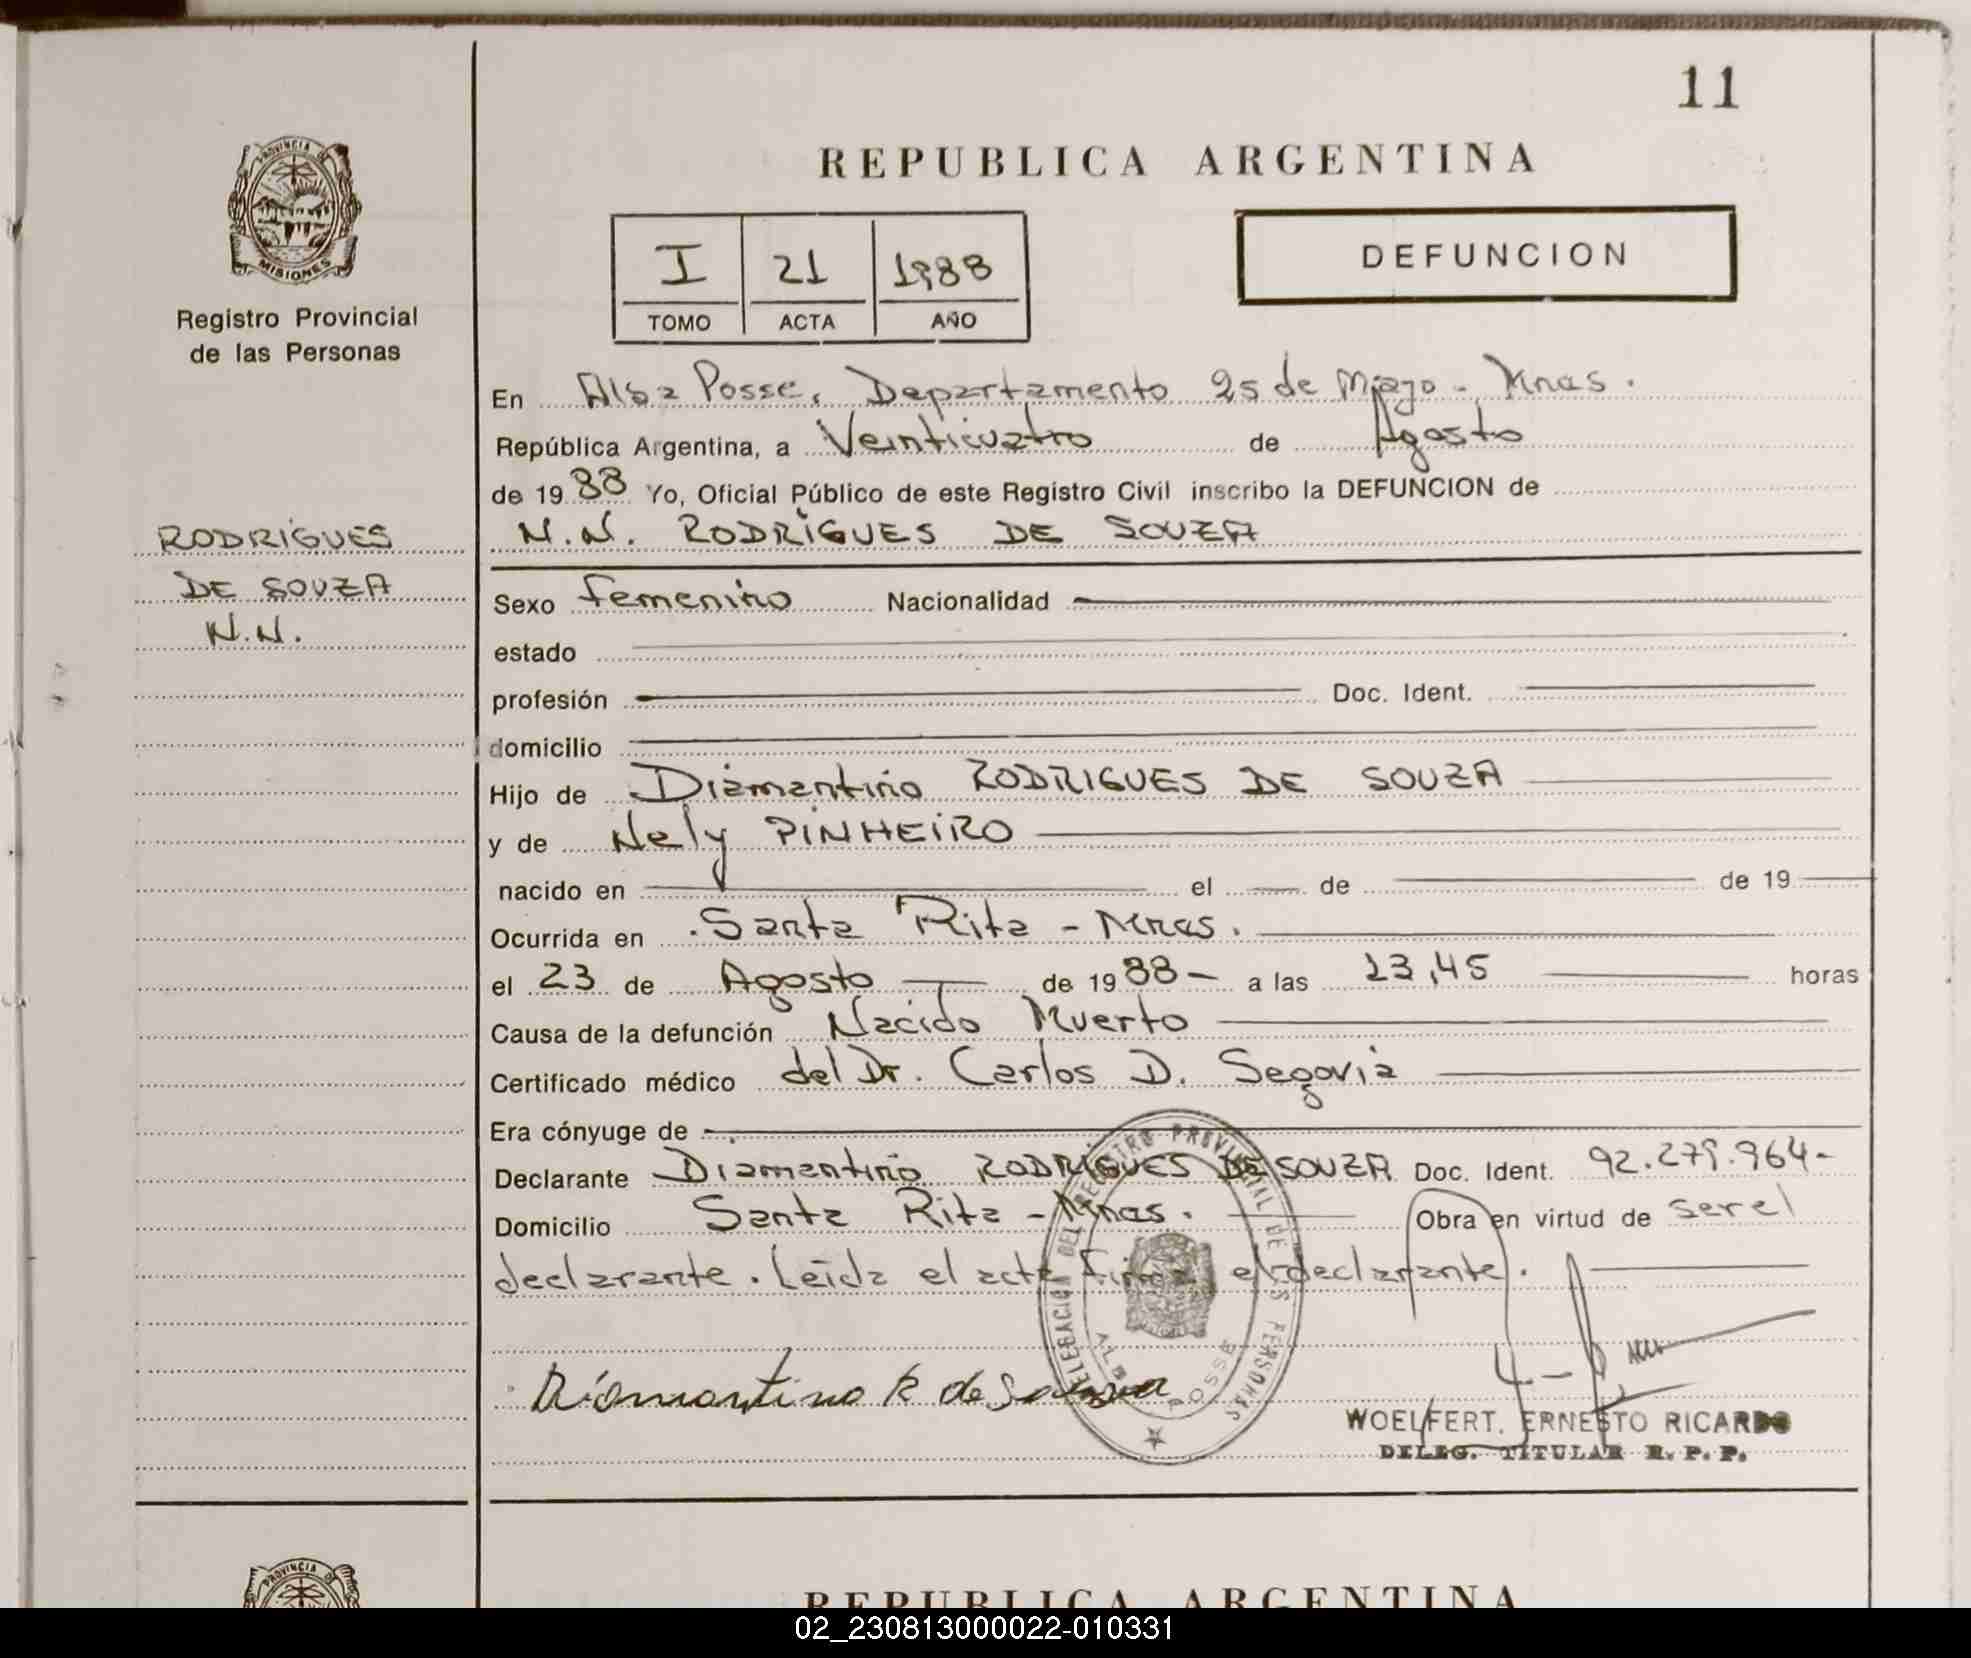 11
PROVINCIA DE
MISIONES
Registro Provincial
de las Personas
REPUBLICA ARGENTINA
I 21 1988
TOMO ACTA AÑO
DEFUNCION
En Alba Posse, Departamento 25 de Mayo - Mnas.
República Argentina, a Veinticuatro de Agosto
de 19 88 Yo, Oficial Público de este Registro Civil inscribo la DEFUNCION de
N.N. RODRIGUES DE SOUZA
RODRIGUES
DE SOUZA
N.N.
Sexo femenino Nacionalidad
estado
profesión Doc. Ident.
domicilio
Hijo de Diamantino RODRIGUES DE SOUZA
y de Nely PINHEIRO
nacido en el de de 19
Ocurrida en Santa Rita - Mnas.
el 23 de Agosto de 19 88 - a las 23,45 horas
Causa de la defunción Nacido Muerto
Certificado médico del Dr. Carlos D. Segovia
Era cónyuge de
Declarante Diamantino RODRIGUES DE SOUZA Doc. Ident. 92.279.964-
Domicilio Santa Rita - Mnas. Obra en virtud de ser el
declarante. Leída el acta Firma el declarante.
Diamantino R de Souza
DELEGACION DEL REGISTRO PROVINCIAL DE LAS PERSONAS
ALBA POSSE
WOELFERT, ERNESTO RICARDO
DELEG. TITULAR R. P. P.
PROVINCIA DE
REPUBLICA ARGENTINA
02_230813000022-010331